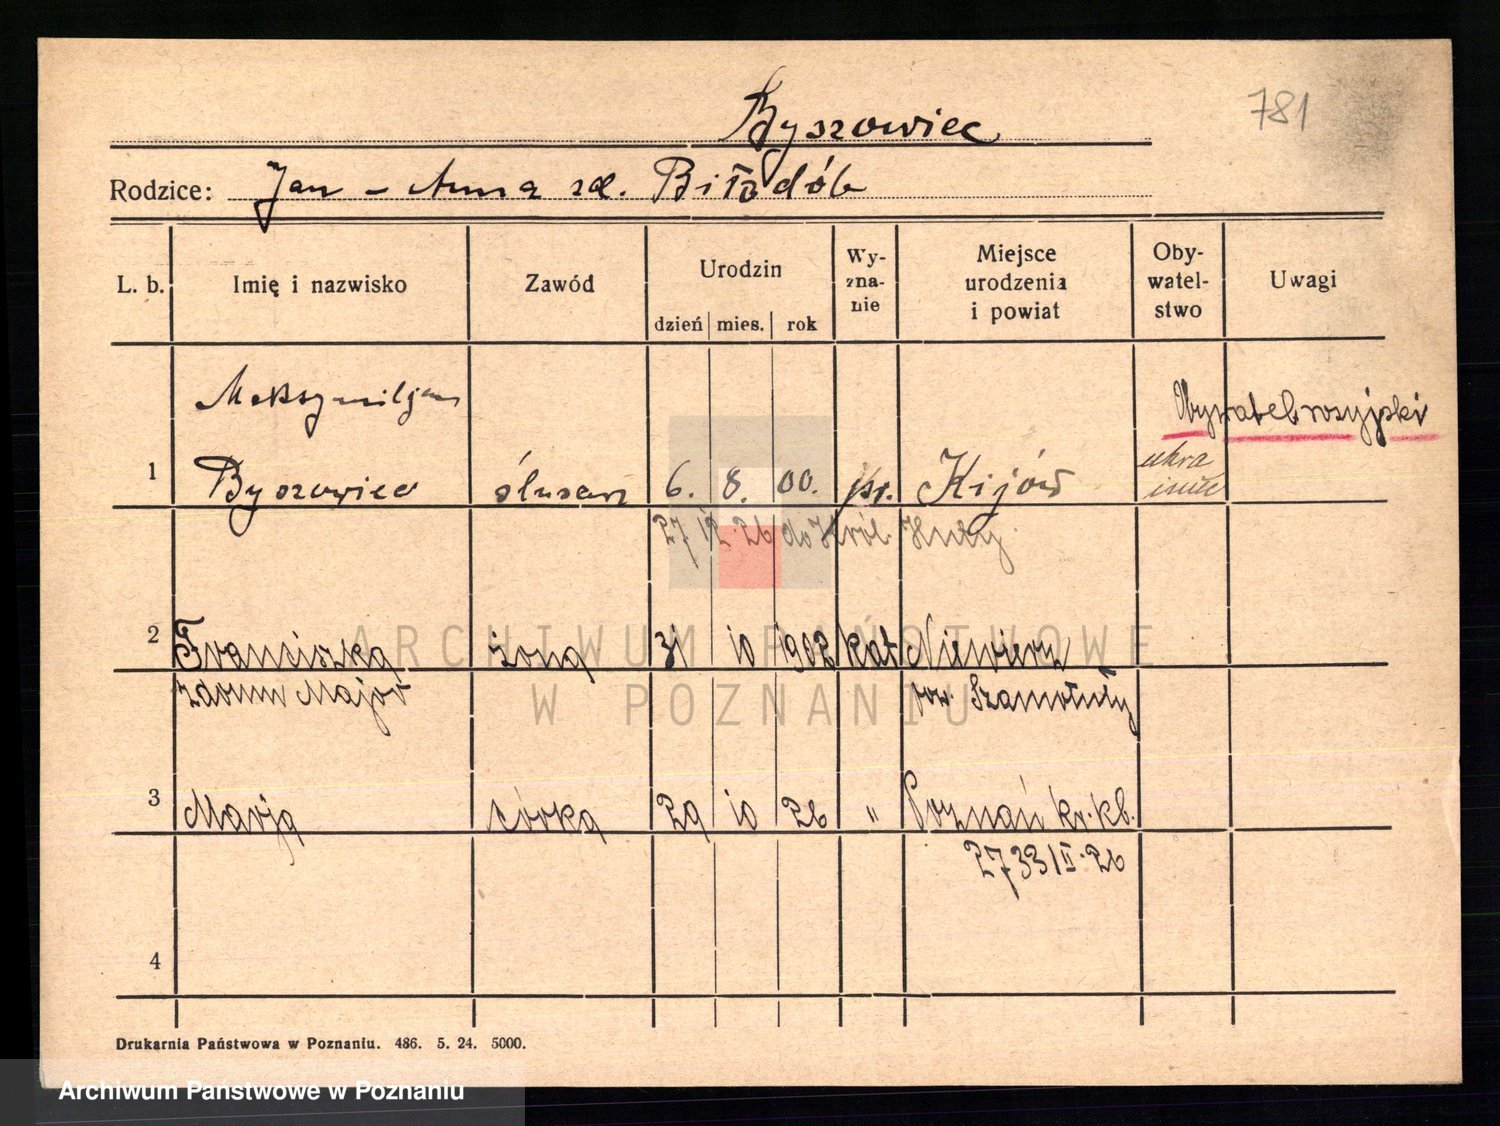 781
Byszowiec
Rodzice: Jan - Anna zd.
L. b. Imię i nazwisko Zawód Urodzin dzień mies. rok Wy-zna-nie Miejsce urodzenia i powiat Oby-watel-stwo Uwagi
Maksymiljan
Obywatel rosyjski
1 Byszowiec ślusarz 6. 8. 00. pr. Kijów
27 12. 26 do Król. Huty
2 Franciszka żona 31 10 1902 kat Niewierz
Major pow. Szamotuły
3 Marja córka 29 10 26 " Poznań
2733/II. 26
4
Drukarnia Państwowa w Poznaniu. 486. 5. 24. 5000.
ARCHIWUM PAŃSTWOWE
W POZNANIU
Archiwum Państwowe w Poznaniu